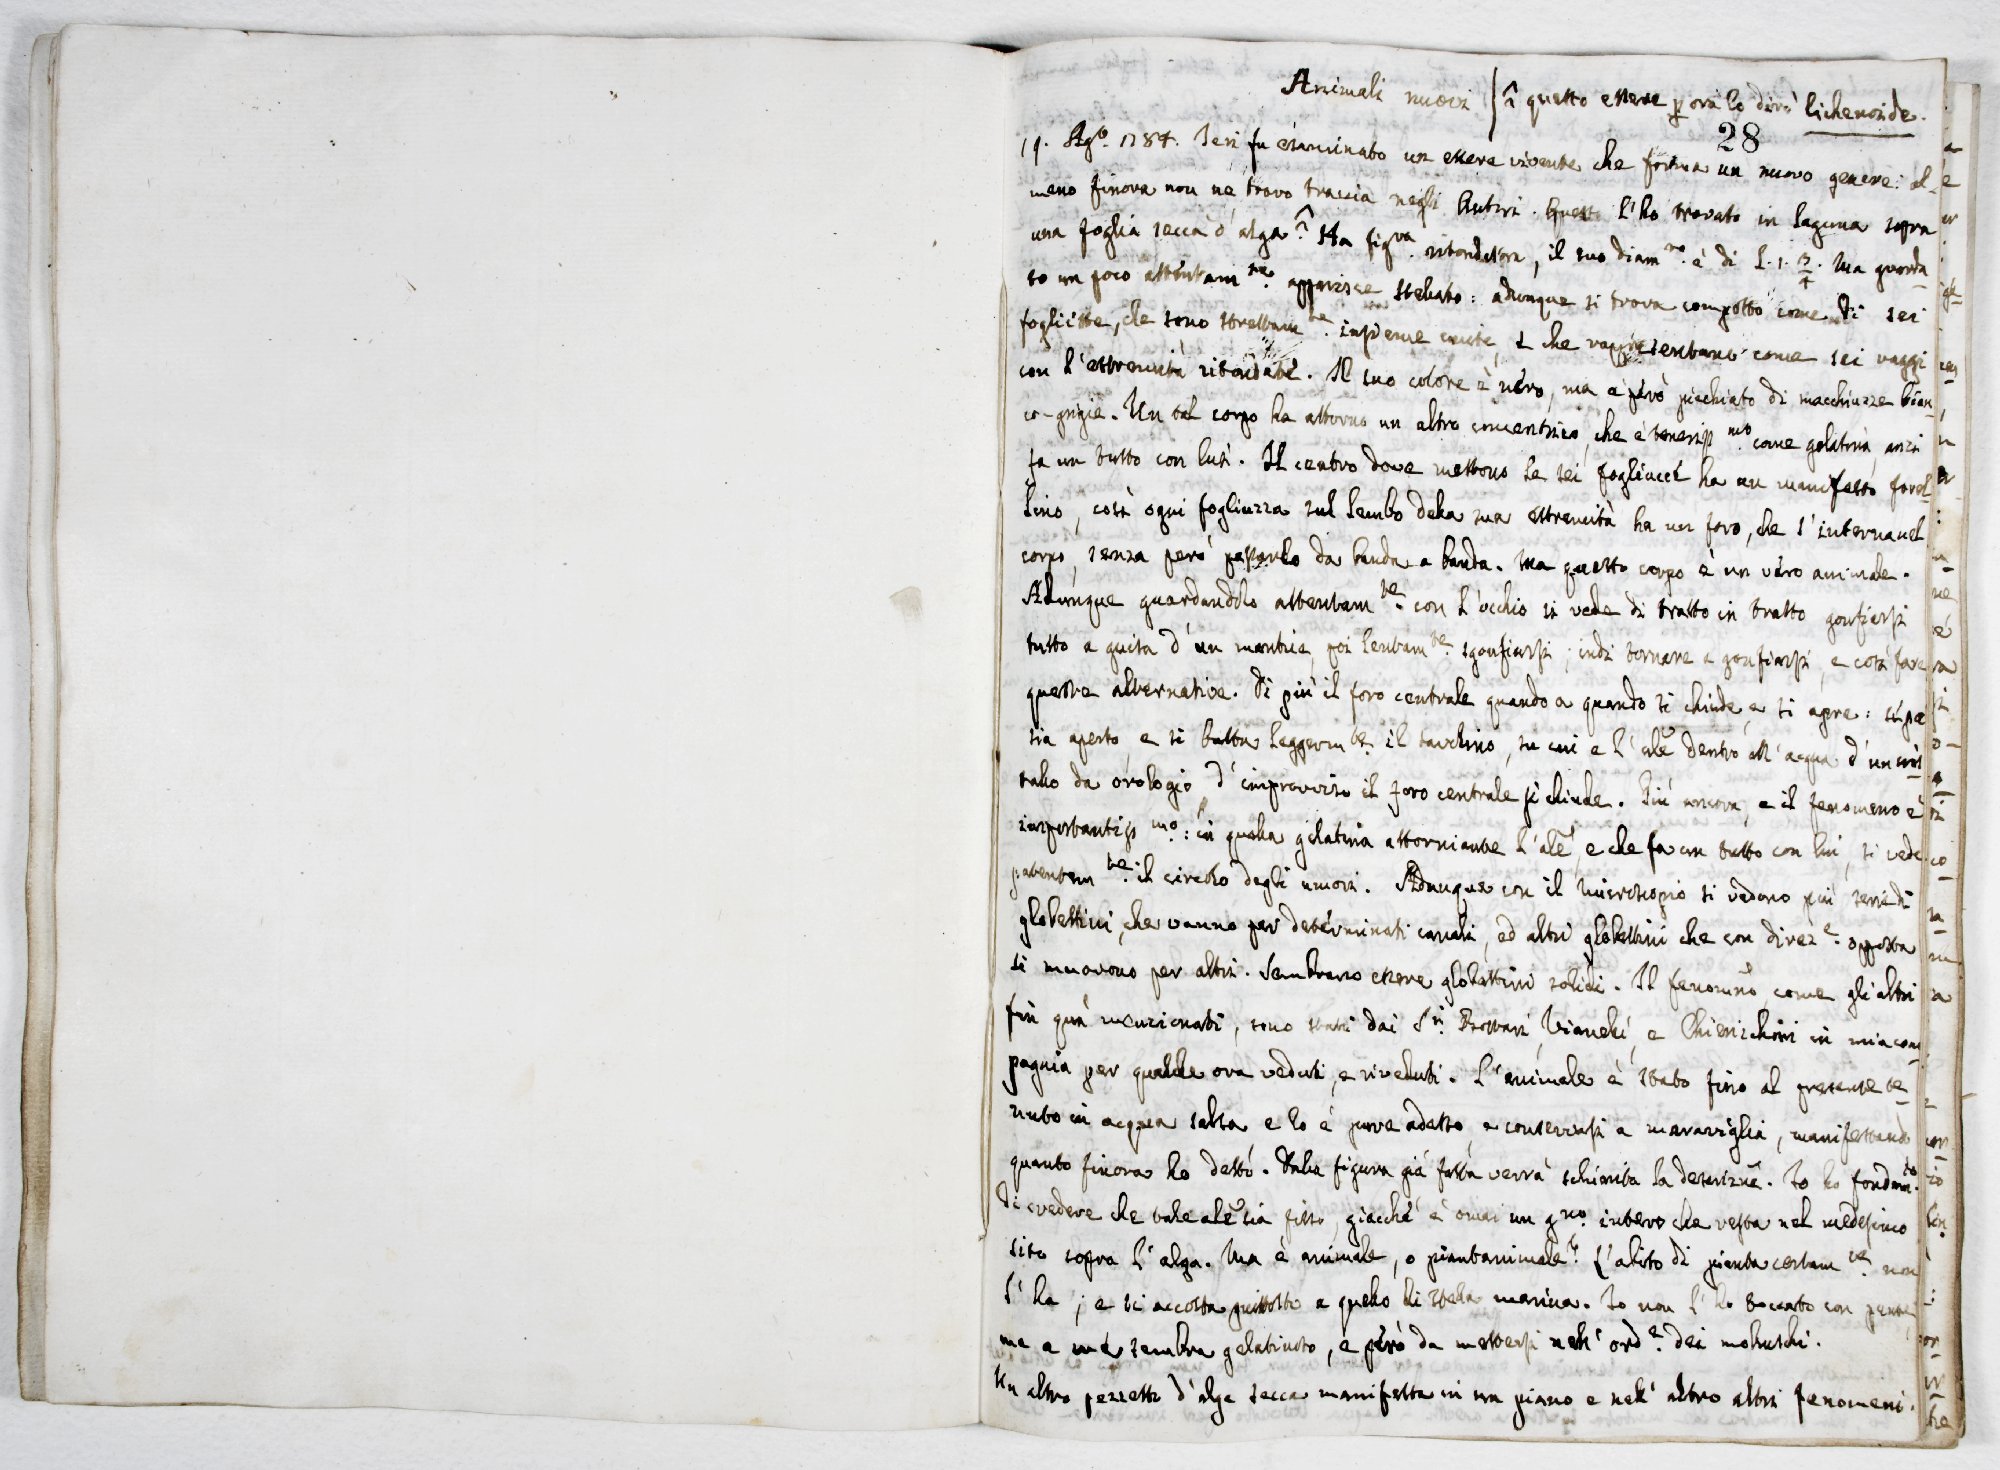 Animali nuovi | ^ questo essere p ora lo dirò lichenoide.
28
19. Ag.o 1784. Ieri fu esaminato un essere vivente che forma un nuovo genere: al-
meno finora non ne trovo traccia negli Autori. Questo l'ho trovato in laguna sopra
una foglia secca d'alga ^. Ha fig.va ritondastra, il suo diam.ro è di L. 1. 3/4. Ma guarda
to un poco attentam.te apparisce stellato: adunque si trova composto come di sei
fogliette, che sono strettam.te insieme unite, e che rappresentano come sei raggi
con l'estremità ritondate. Il suo colore è nero, ma è però picchiato di macchiuzze bian-
co-grigie. Un tal corpo ha attorno un altro concentrico, che è tenerissmo come gelatina, anzi
fa un tutto con lui. Il centro dove mettono le sei fogliucce ha un manifesto forel-
lino, così ogni fogliuzza sul lembo della sua estremità ha un foro, che s'interna nel
corpo, senza però passarlo da banda a banda. Ma questo corpo è un vero animale.
Adunque guardandolo attentam.te con l'occhio si vede di tratto in tratto gonfiarsi
tutto a guisa d'un mantice, poi lentam.te sgonfiarsi; indi tornare a gonfiarsi, e così fare
queste alternative. Di più il foro centrale quando a quando si chiude e si apre: se poi
sia aperto e si batta leggerm.te il tavolino, su cui è l'ale dentro all'acqua d'un cris-
tallo da orologio d'improvviso il foro centrale si chiude. Più ancora, e il fenomeno è
importantiss.mo: in quella gelatina attorniante l'ale, e che fa un tutto con lui, si vede
patentem.te il circolo degli umori. Adunque con il microscopio si vedono più serie di
globettini, che vanno per determinati canali, ed altri globettini che con direz.e opposta
si muovono per altri. Sembrano essere globettini solidi. Il fenomno come gli altri
fin quà menzionati, sono stati dai S.ri Bottari, Vianelli, e Chiereghini in mia com-
pagnia per qualche ora veduti, e riveduti. L'animale è stato fino al presente te-
nuto in acqua salsa e lo è pure adesso, e conservasi a maraviglia, manifestando
quanto finora ho detto. Dalla figura già fatta verrà schiarita la descrizne. Io ho fondam.to
di credere che tale ale sia fisso, giacchè è omai un g.no intero che resta nel medesimo
sito sopra l'alga. Ma è animale, o piantanimale? L'abito di pianta certam.te non
l'ha; e si accosta piuttosto a quello di stella marina. Io non l'ho toccato con
ma a me sembra gelatinoso, e però da mettersi nell'ord.e dei molluschi.
Un altro pezzetto d'alga secca manifesta in un piano e nell'altro altri fenomeni.